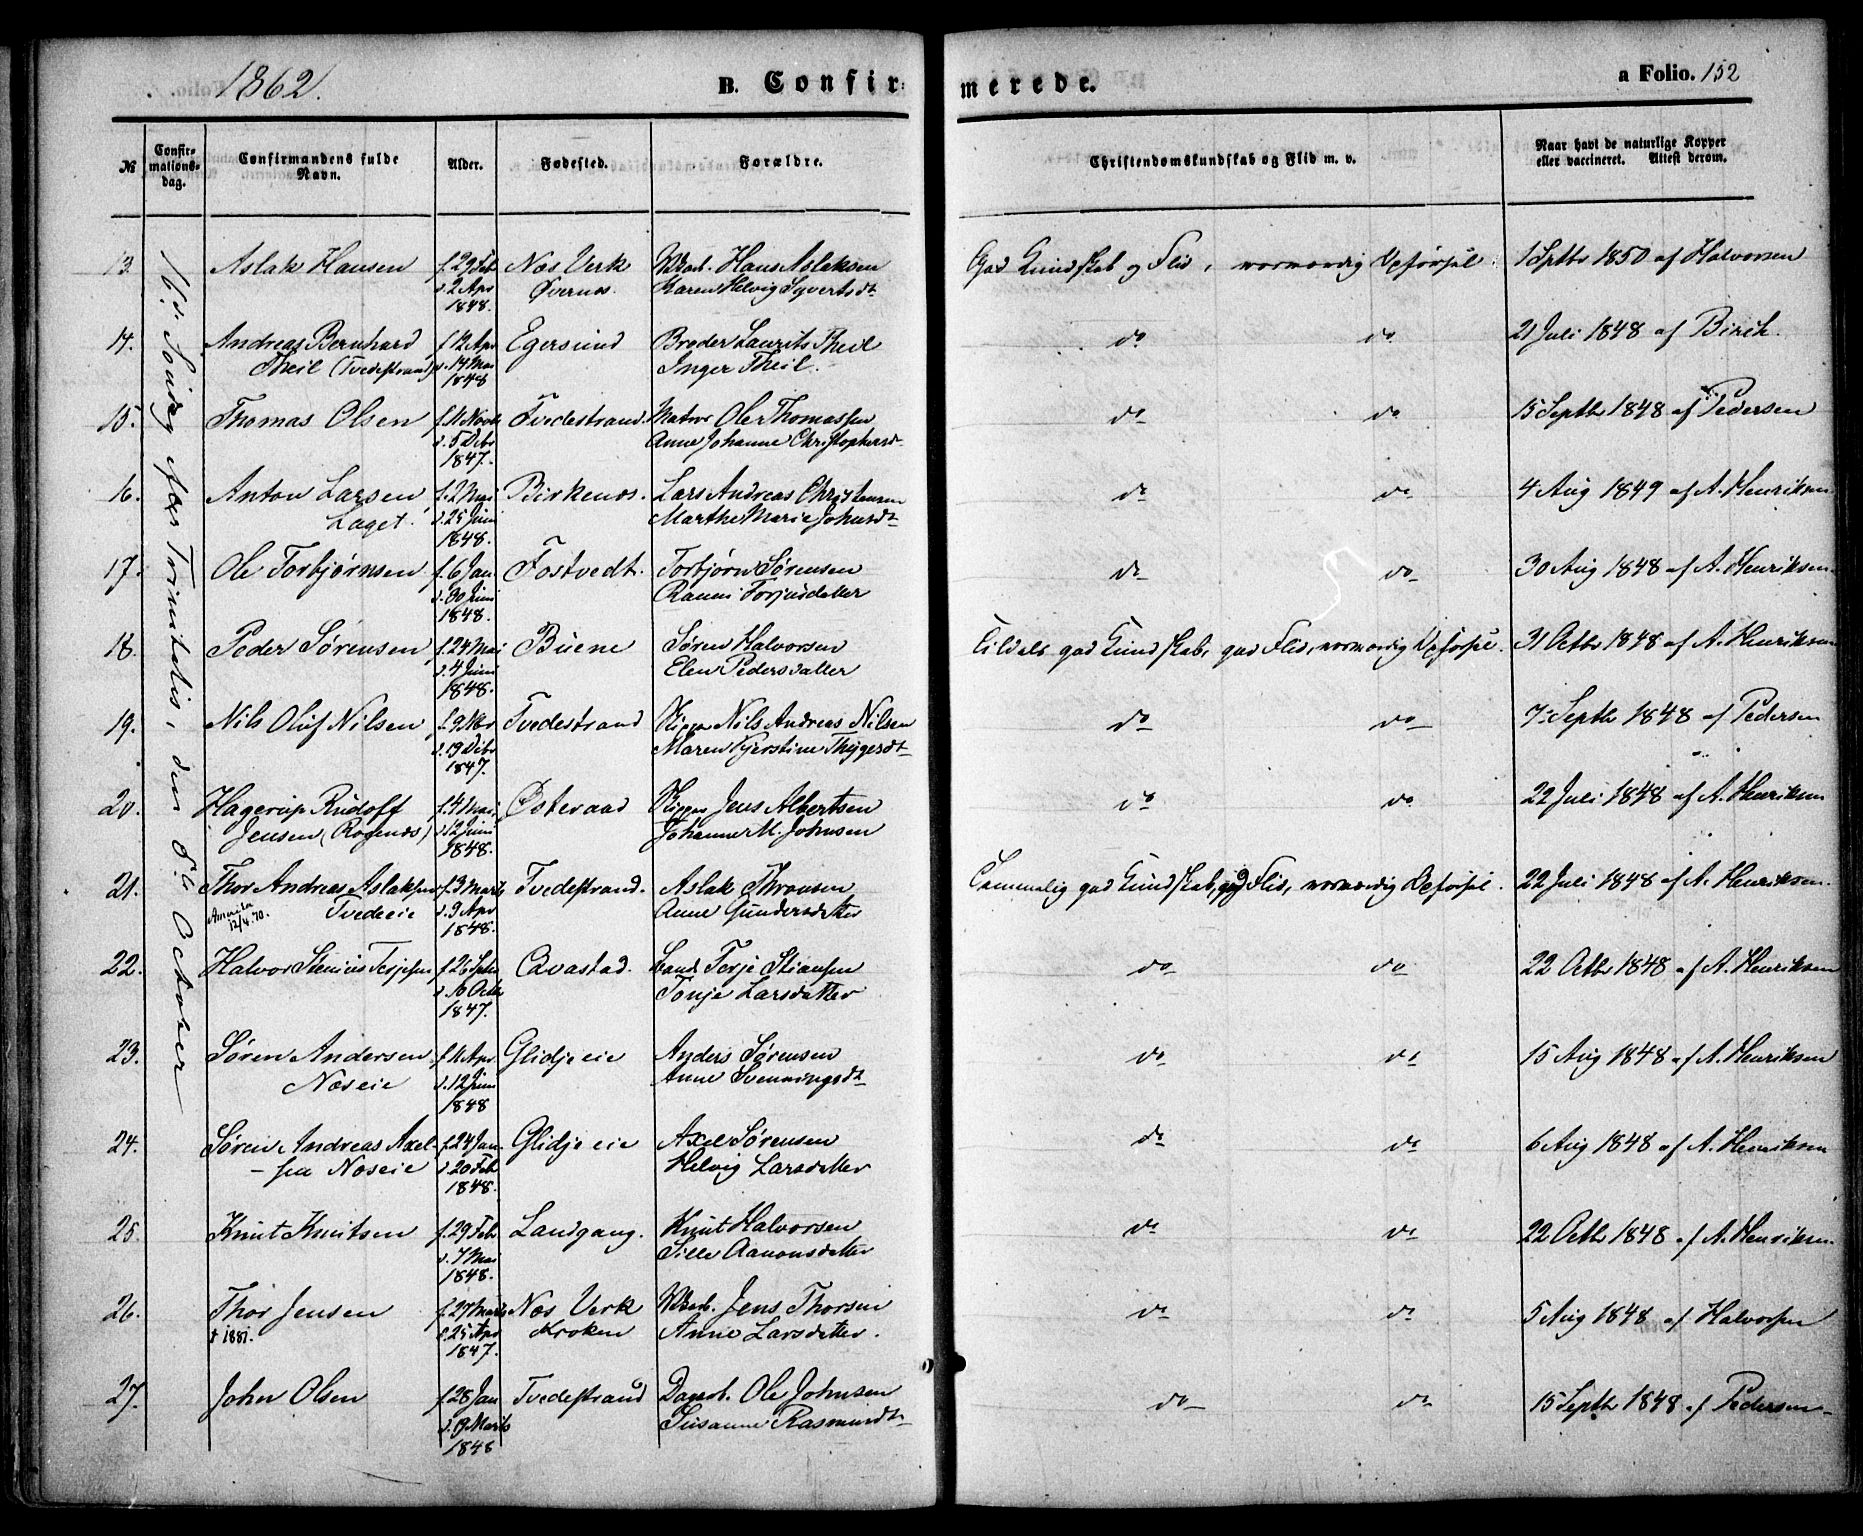 1862.
B. Confir-
merede.
a Folio. 152
№
Confir-
mations-
dag.
Confirmandens fulde
Navn.
Alder.
Fødested.
Forældre.
Christendomskundskab og Flid m. v.
Naar havt de naturlige Kopper
eller vaccineret. Attest derom.
16d. Søndag efter Trinitatis, den 5te October
13. Aslak Hansen f. 29 Feb Næs Verk Hans Aslaksen God Kundskab og Flid, Opførsel 1 Septbr 1850 af Halvorsen
d. 2 Apr Øvernæs. Karen Helvig Syvertsdt
1848.
14. Andreas Bernhard f. 12 Apr Egersund Broder Laurits Theil do do 21 Juli 1848 af Birch.
Theil (Tvedestrand) d. 14 Mai Inger Theil.
1848
15. Thomas Olsen f. 11 Novb Tvedestrand. Matros Ole Thomassen do do 15 Septbr 1848 af Pedersen
d. 5 Debr Anne Johanne Christophersdt
1847.
16. Anton Larsen f. 2 Mai Birkenæs. Lars Andreas Christensen do do 4 Aug 1849 af A. Henriksen
Laget. d. 25 Juni Marthe Marie Johnsdt
1848.
17. Ole Torbjørnsen f. 6 Jan Fostvedt. Torbjørn Sørensen do do 30 Aug 1848 af A. Henriksen
d. 30 Juni Ranni Terjusdatter
1848.
18. Peder Sørensen f. 24 Mai Buene Søren Halvorsen Tildels god Kundskab, god Flid, Opførsel. 31 Octbr 1848 af A. Henriksen
d. 4 Juni Elen Pedersdatter
1848.
19. Nils Oluf Nilsen f. 9 Nov Tvedestrand Skipper Nils Andreas Nilsen do do 7 Septbr 1848 af Pedersen
d. 19 Debr Maren Kjerstine Thygesdt
1847.
20. Hagerup Rudolf f. 4 Mai Østeraad Skipper Jens Albertsen do do 22 Juli 1848 af A. Henriksen
Jensen (Rogenæs) d. 12 Juni Johanne M. Johnsen
1848.
21. Thor Andreas Aslaksen f. 3 Marts Tvedestrand. Aslak Thronsen Temmelig god Kundskab, god Flid, Opførsel. 22 Juli 1848 af A. Henriksen
Amerika Tvedeeie d. 9 Apr Anne Gundersdatter
12/4.70. 1848.
22. Halvor Stenius Terjesen f. 26 Septbr Qvastad. Terje Stiansen do do 22 Octbr 1848 af A. Henriksen
d. 10 Octbr Tonje Larsdatter
1847.
23. Søren Andersen f. 11 Apr Glidje eie Anders Sørensen do do 15 Aug 1848 af A. Henriksen
Næseie d. 12 Juni Anne Svenningsdt
1848
24. Søren Andreas Axel- f. 24 Jan Glidje eie Axel Sørensen do do 6 Aug 1848 af A. Henriksen
-sen Næseie d. 20 Feb Helvig Larsdatter
1848.
25. Knut Knutsen f. 29 Feb Landgang. Knut Halvorsen do do 22 Octbr 1848 af A. Henriksen
d. 7 Mai Sille Aanonsdatter
1848.
26. Thor Jensen f. 27 Marts Næs Verk Jens Thorsen do do 5 Aug 1848 af Halvorsen
† 1881. d. 25 Apr Kroken Anne Larsdatter.
1847.
27. John Olsen f. 28 Jan Tvedestrand Ole Johnsen do do 15 Septbr 1848 af Pedersen
d. 19 Marts Susanne Rasmusdt
1848